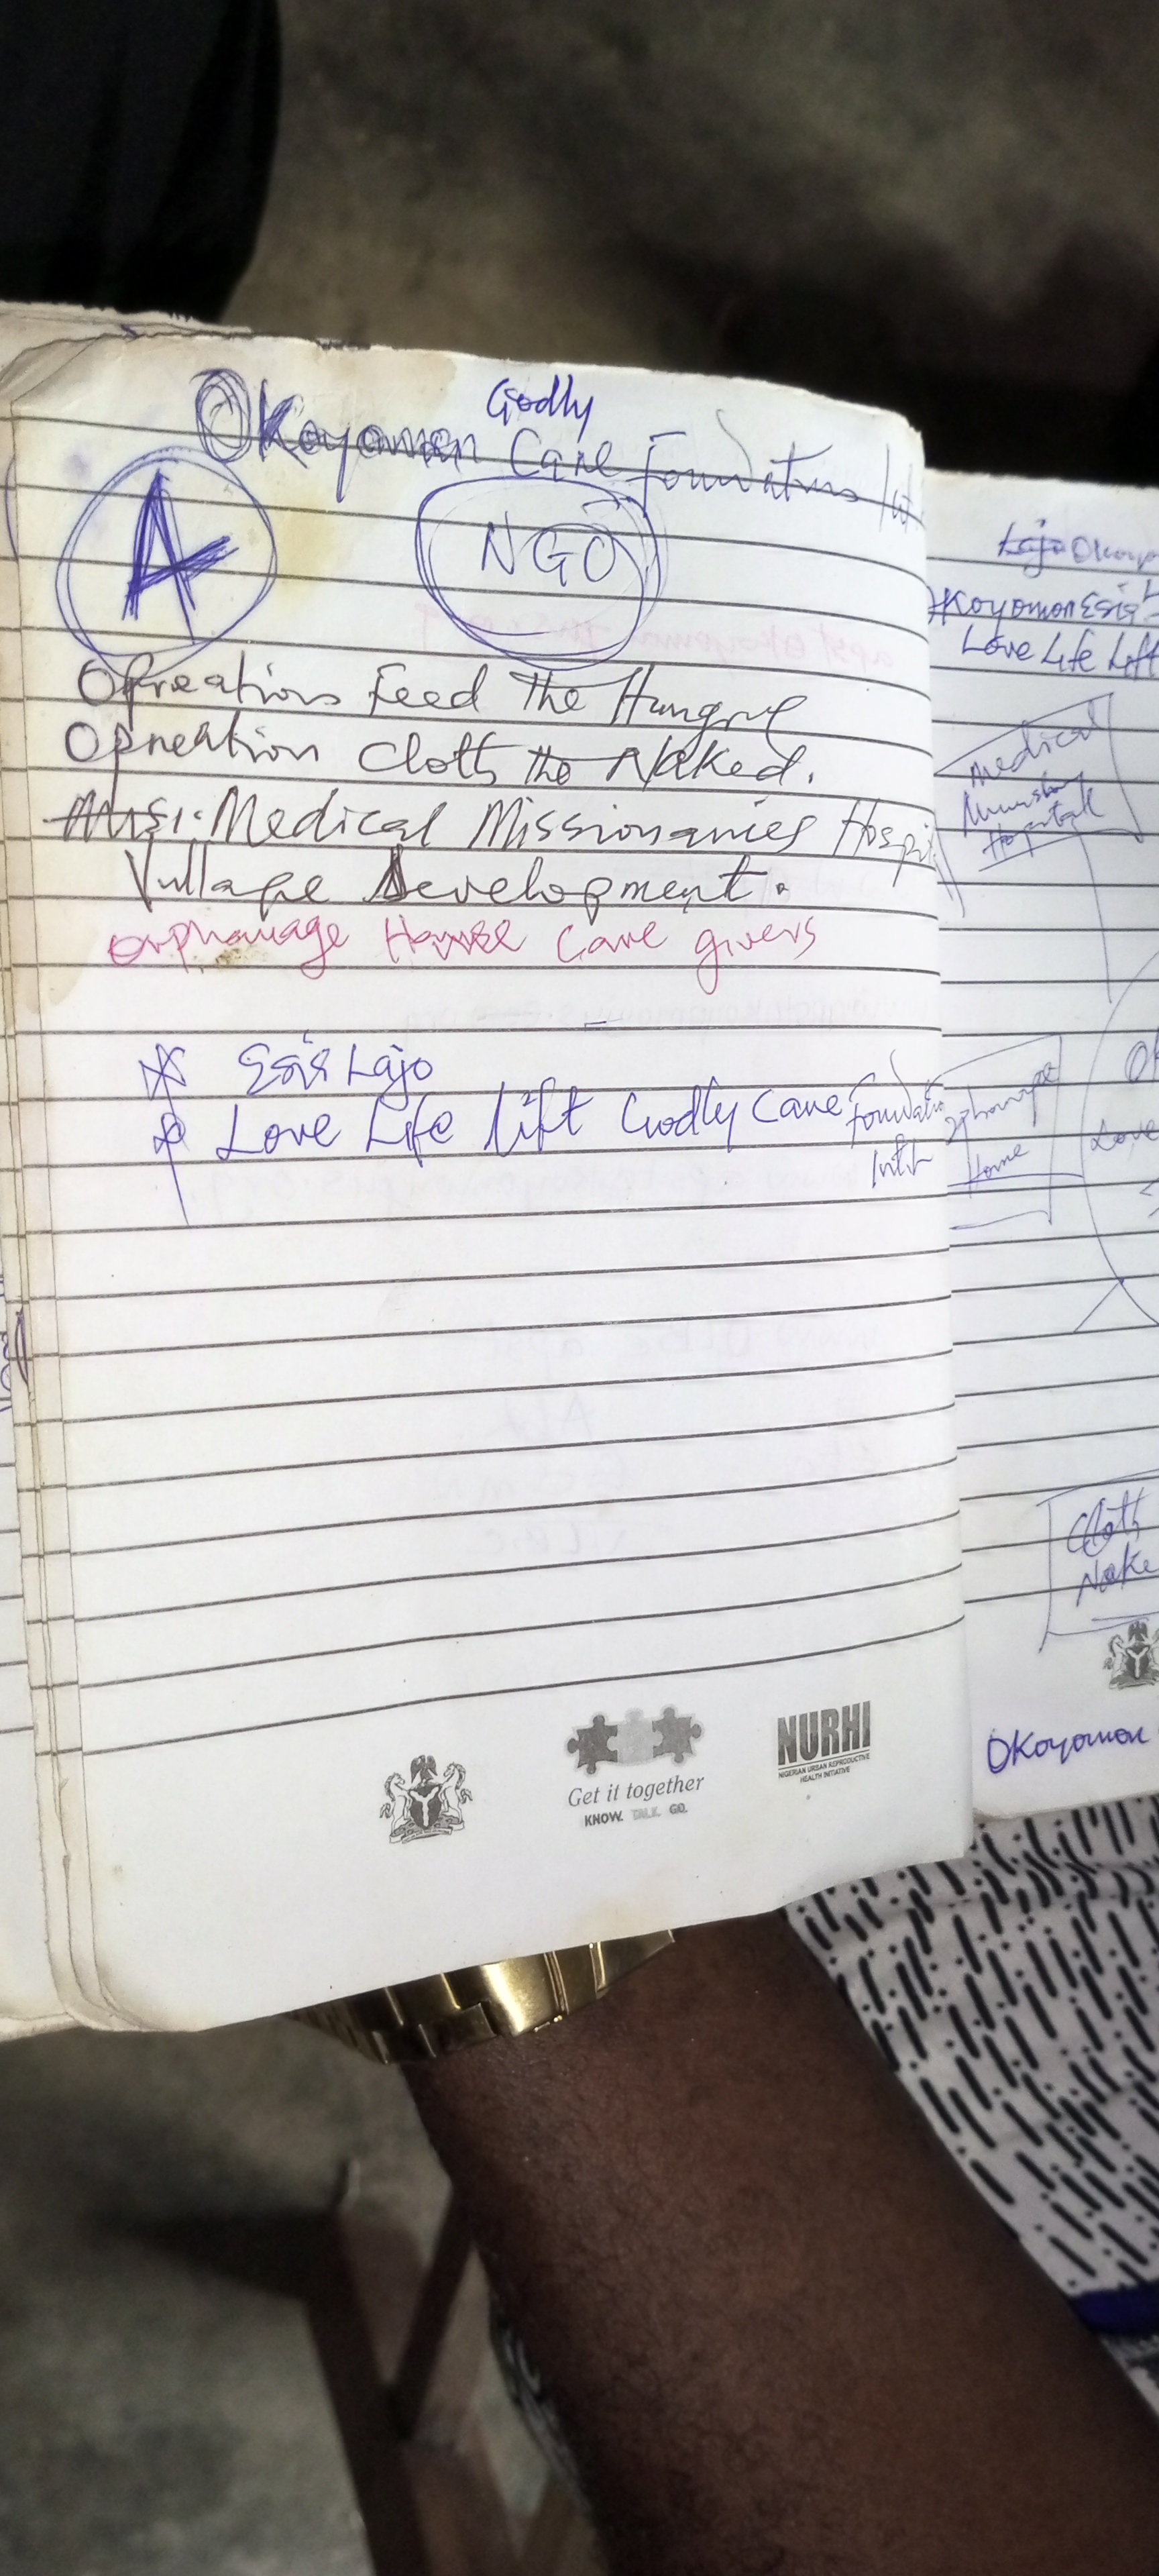 Godly
Okoyomon Care Foundations Int
A
NGO
Opreations Feed The Hungry
Opreation Cloth the Naked.
Medical Missionaries Hospi
Village Development.
orphanage House Care givers
Esis Lajo
Love Life lift Godly Care Foundatio
Int'l
Get it together
KNOW. TALK. GO.
NURHI
NIGERIAN URBAN REPRODUCTIVE
HEALTH INITIATIVE
Lajo Okoyo
Okoyomon Esis
Love Life Lift
Medical
Hospital
Orphanage
Home
Ok
Love
Cloth
Nake
Okoyomon